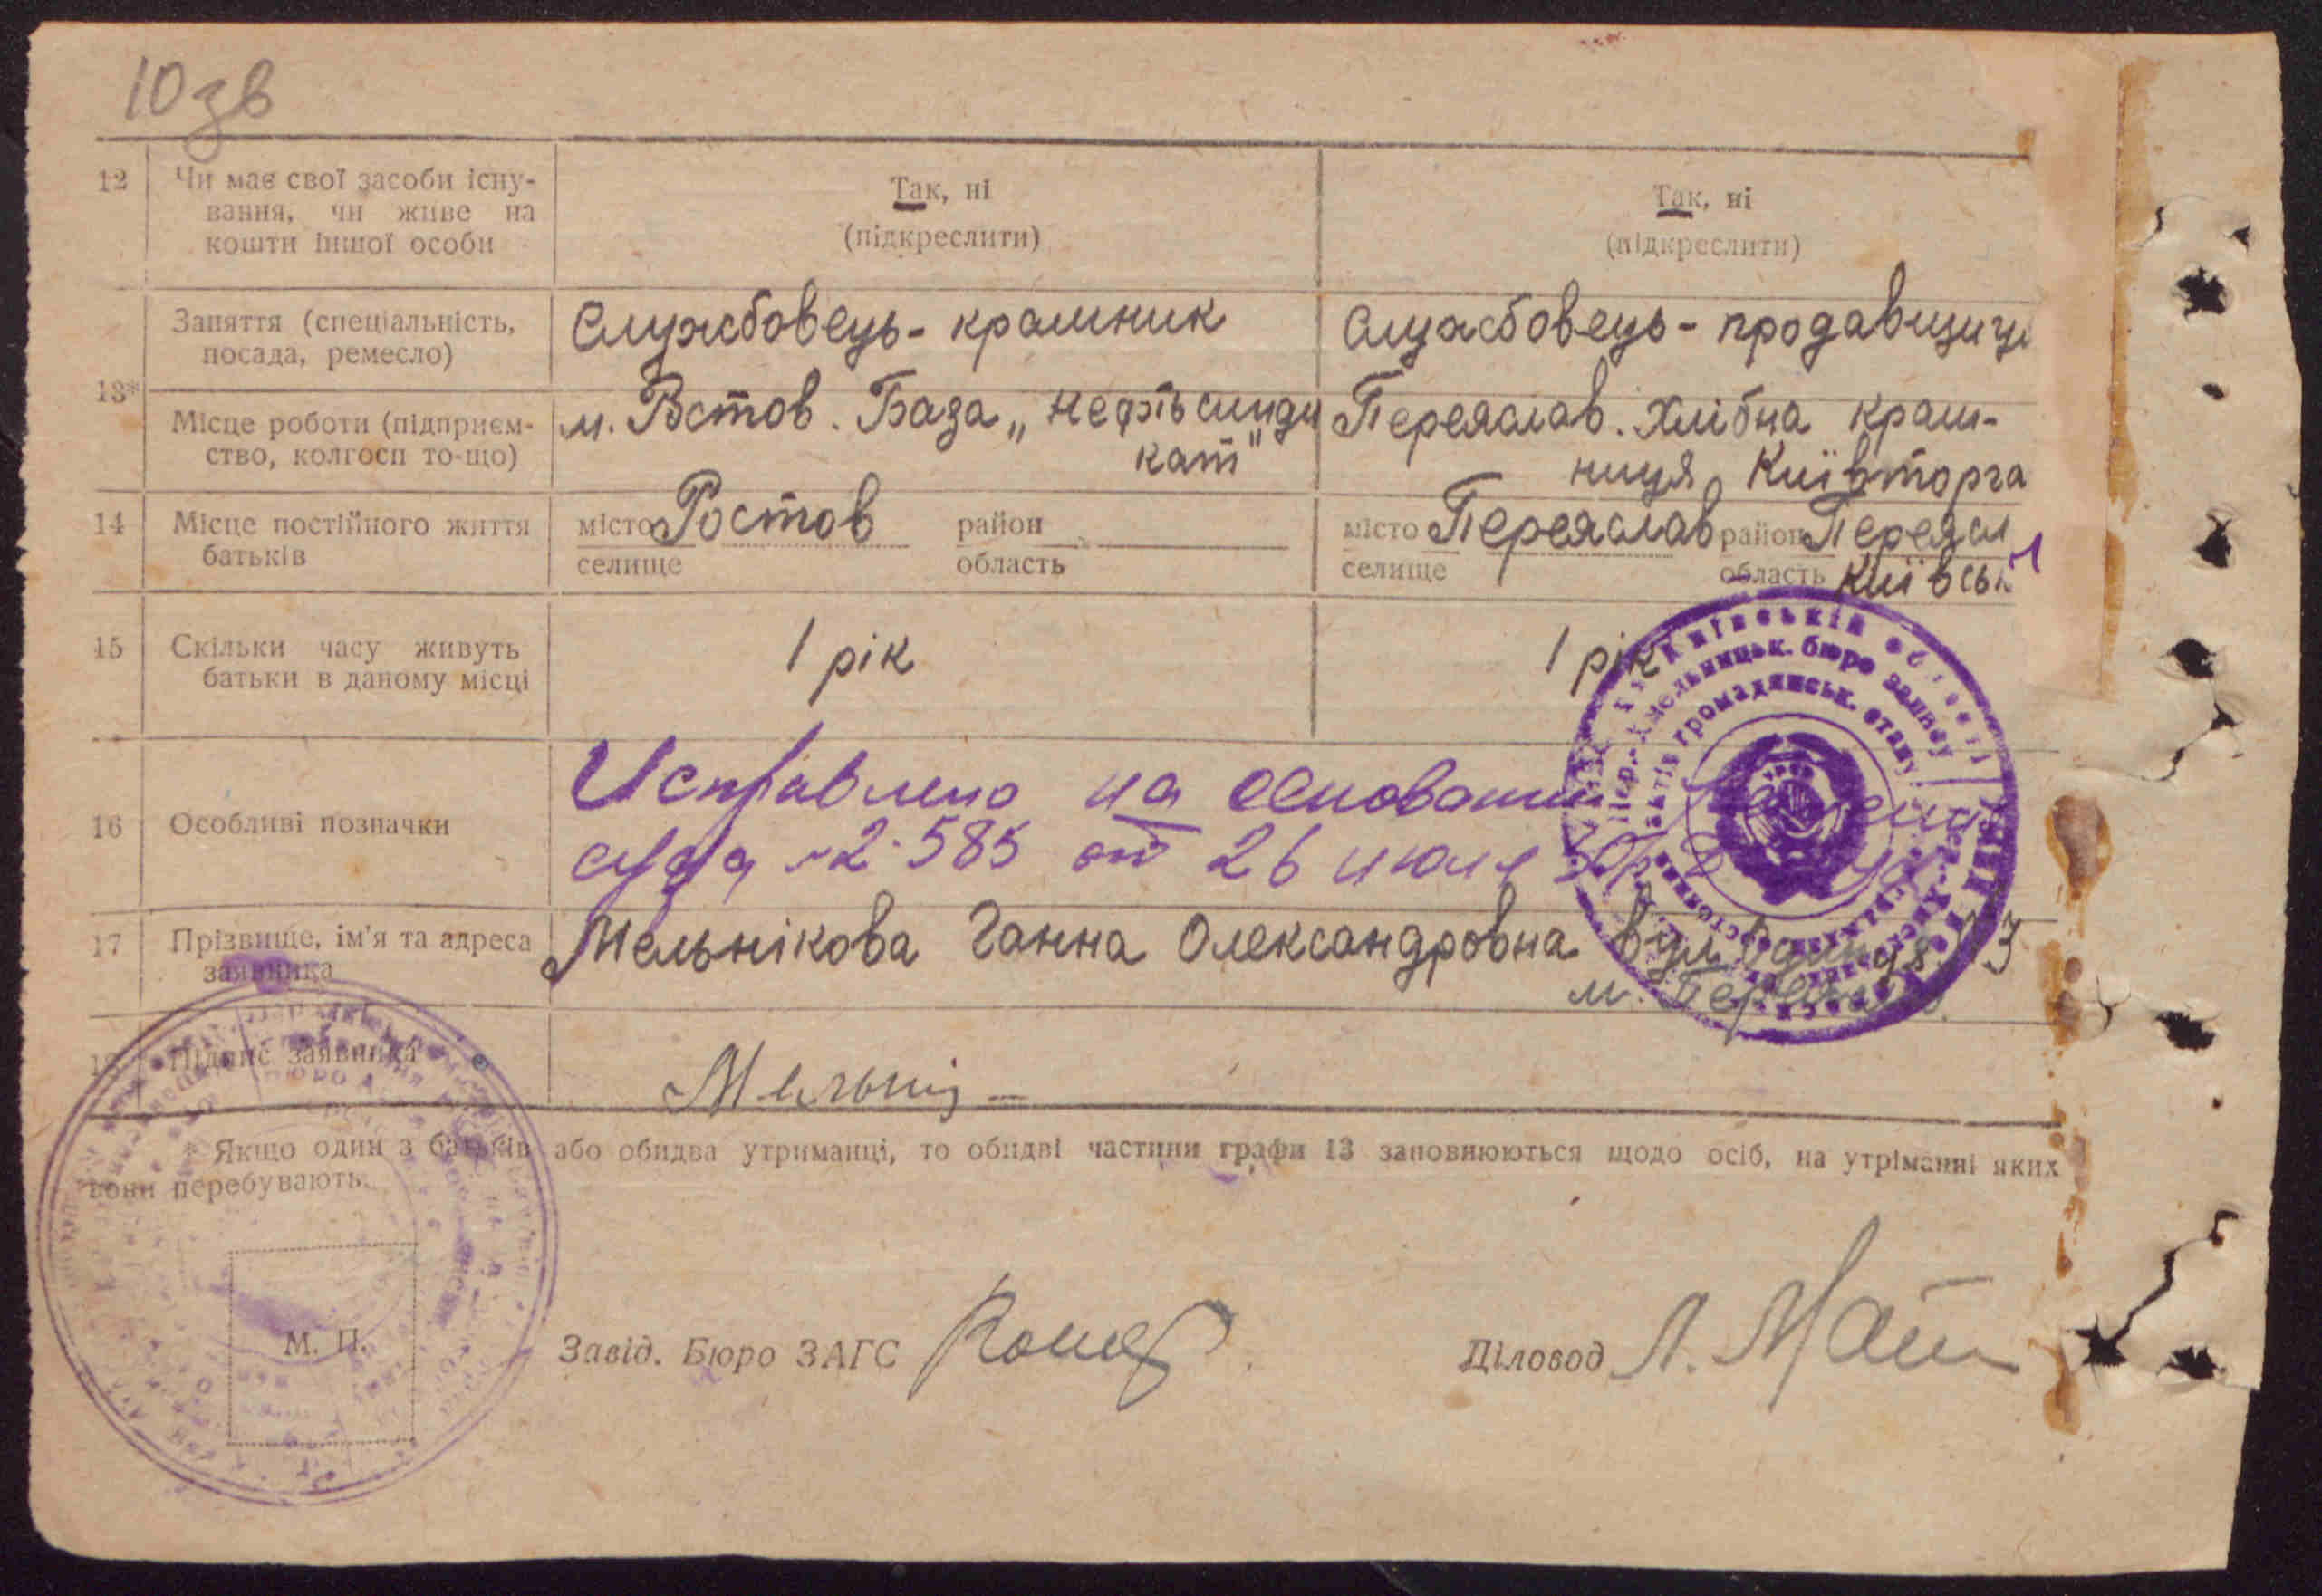 10 зв
12 Чи має свої засоби існу-
вання, чи живе на
кошти іншої особи
Так, ні
(підкреслити)
Так, ні
(підкреслити)
13*
Заняття (спеціальність,
посада, ремесло)
Службовець - крамник
Службовець - продавщиця
Місце роботи (підприєм-
ство, колгосп то-що)
м. Ростов. База „Нефтьсинди
кат"
Переяслав. Хлібна крам-
ниця Київторга
14 Місце постійного життя
батьків
місто Ростов район
селище область
місто Переяслав район Переясл
селище область Київськ
15 Скільки часу живуть
батьки в даному місці
1 рік
1 рік
16 Особливі позначки
Исправлено на основании
суда 2-585 от 26 июля
17 Прізвище, ім'я та адреса
заявника
Мельнікова Ганна Олександровна вул
м. Переяслав
18 Підпис заявника
* Якщо один з батьків або обидва утриманці, то обидві частини графи 13 заповнюються щодо осіб, на утріманні яких
вони перебувають.
М. П.
Завід. Бюро ЗАГС
Діловод Л.
Київській
Хмельницьк. бюро запису
актів громадянськ. стану